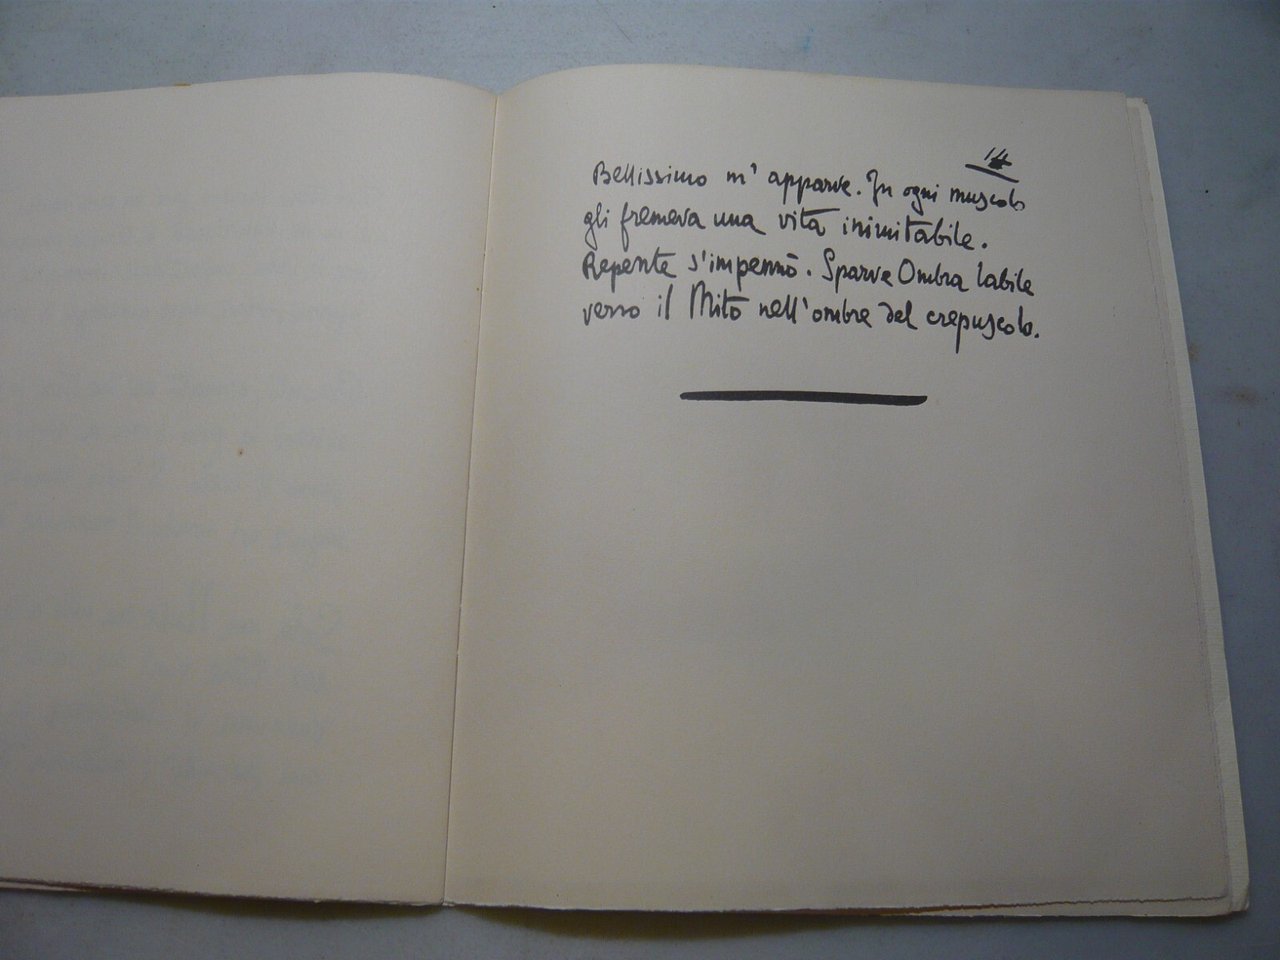 14
Bellissimo m'apparve. In ogni muscolo
gli fremeva una vita inimitabile.
Repente s'impennò. Sparve Ombra labile
verso il Mito nell'ombre del crepuscolo.